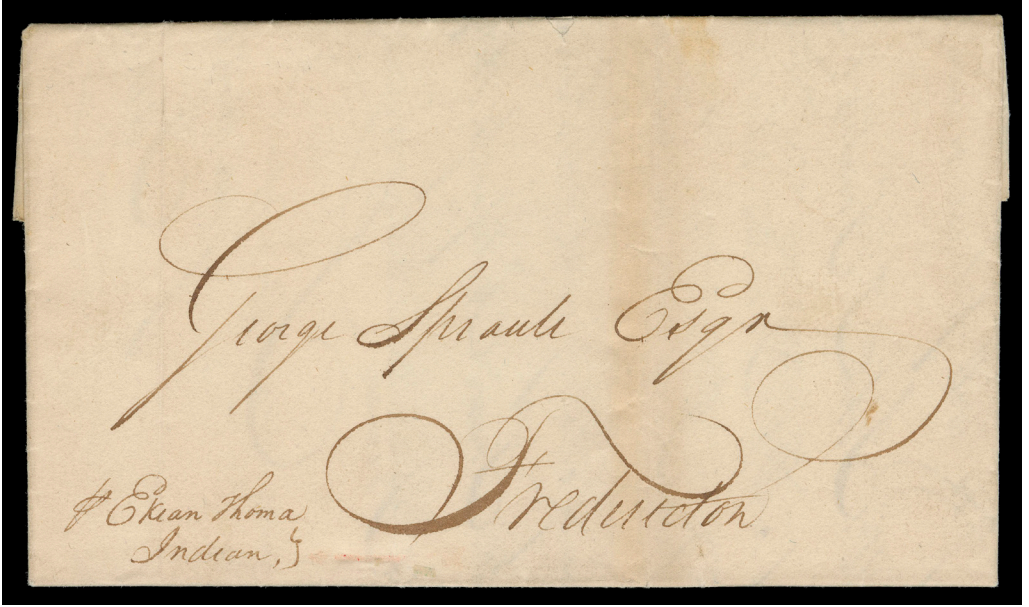 George Sproule Esqr
Fredericton
⅌ Ekian Thoma
Indian, }